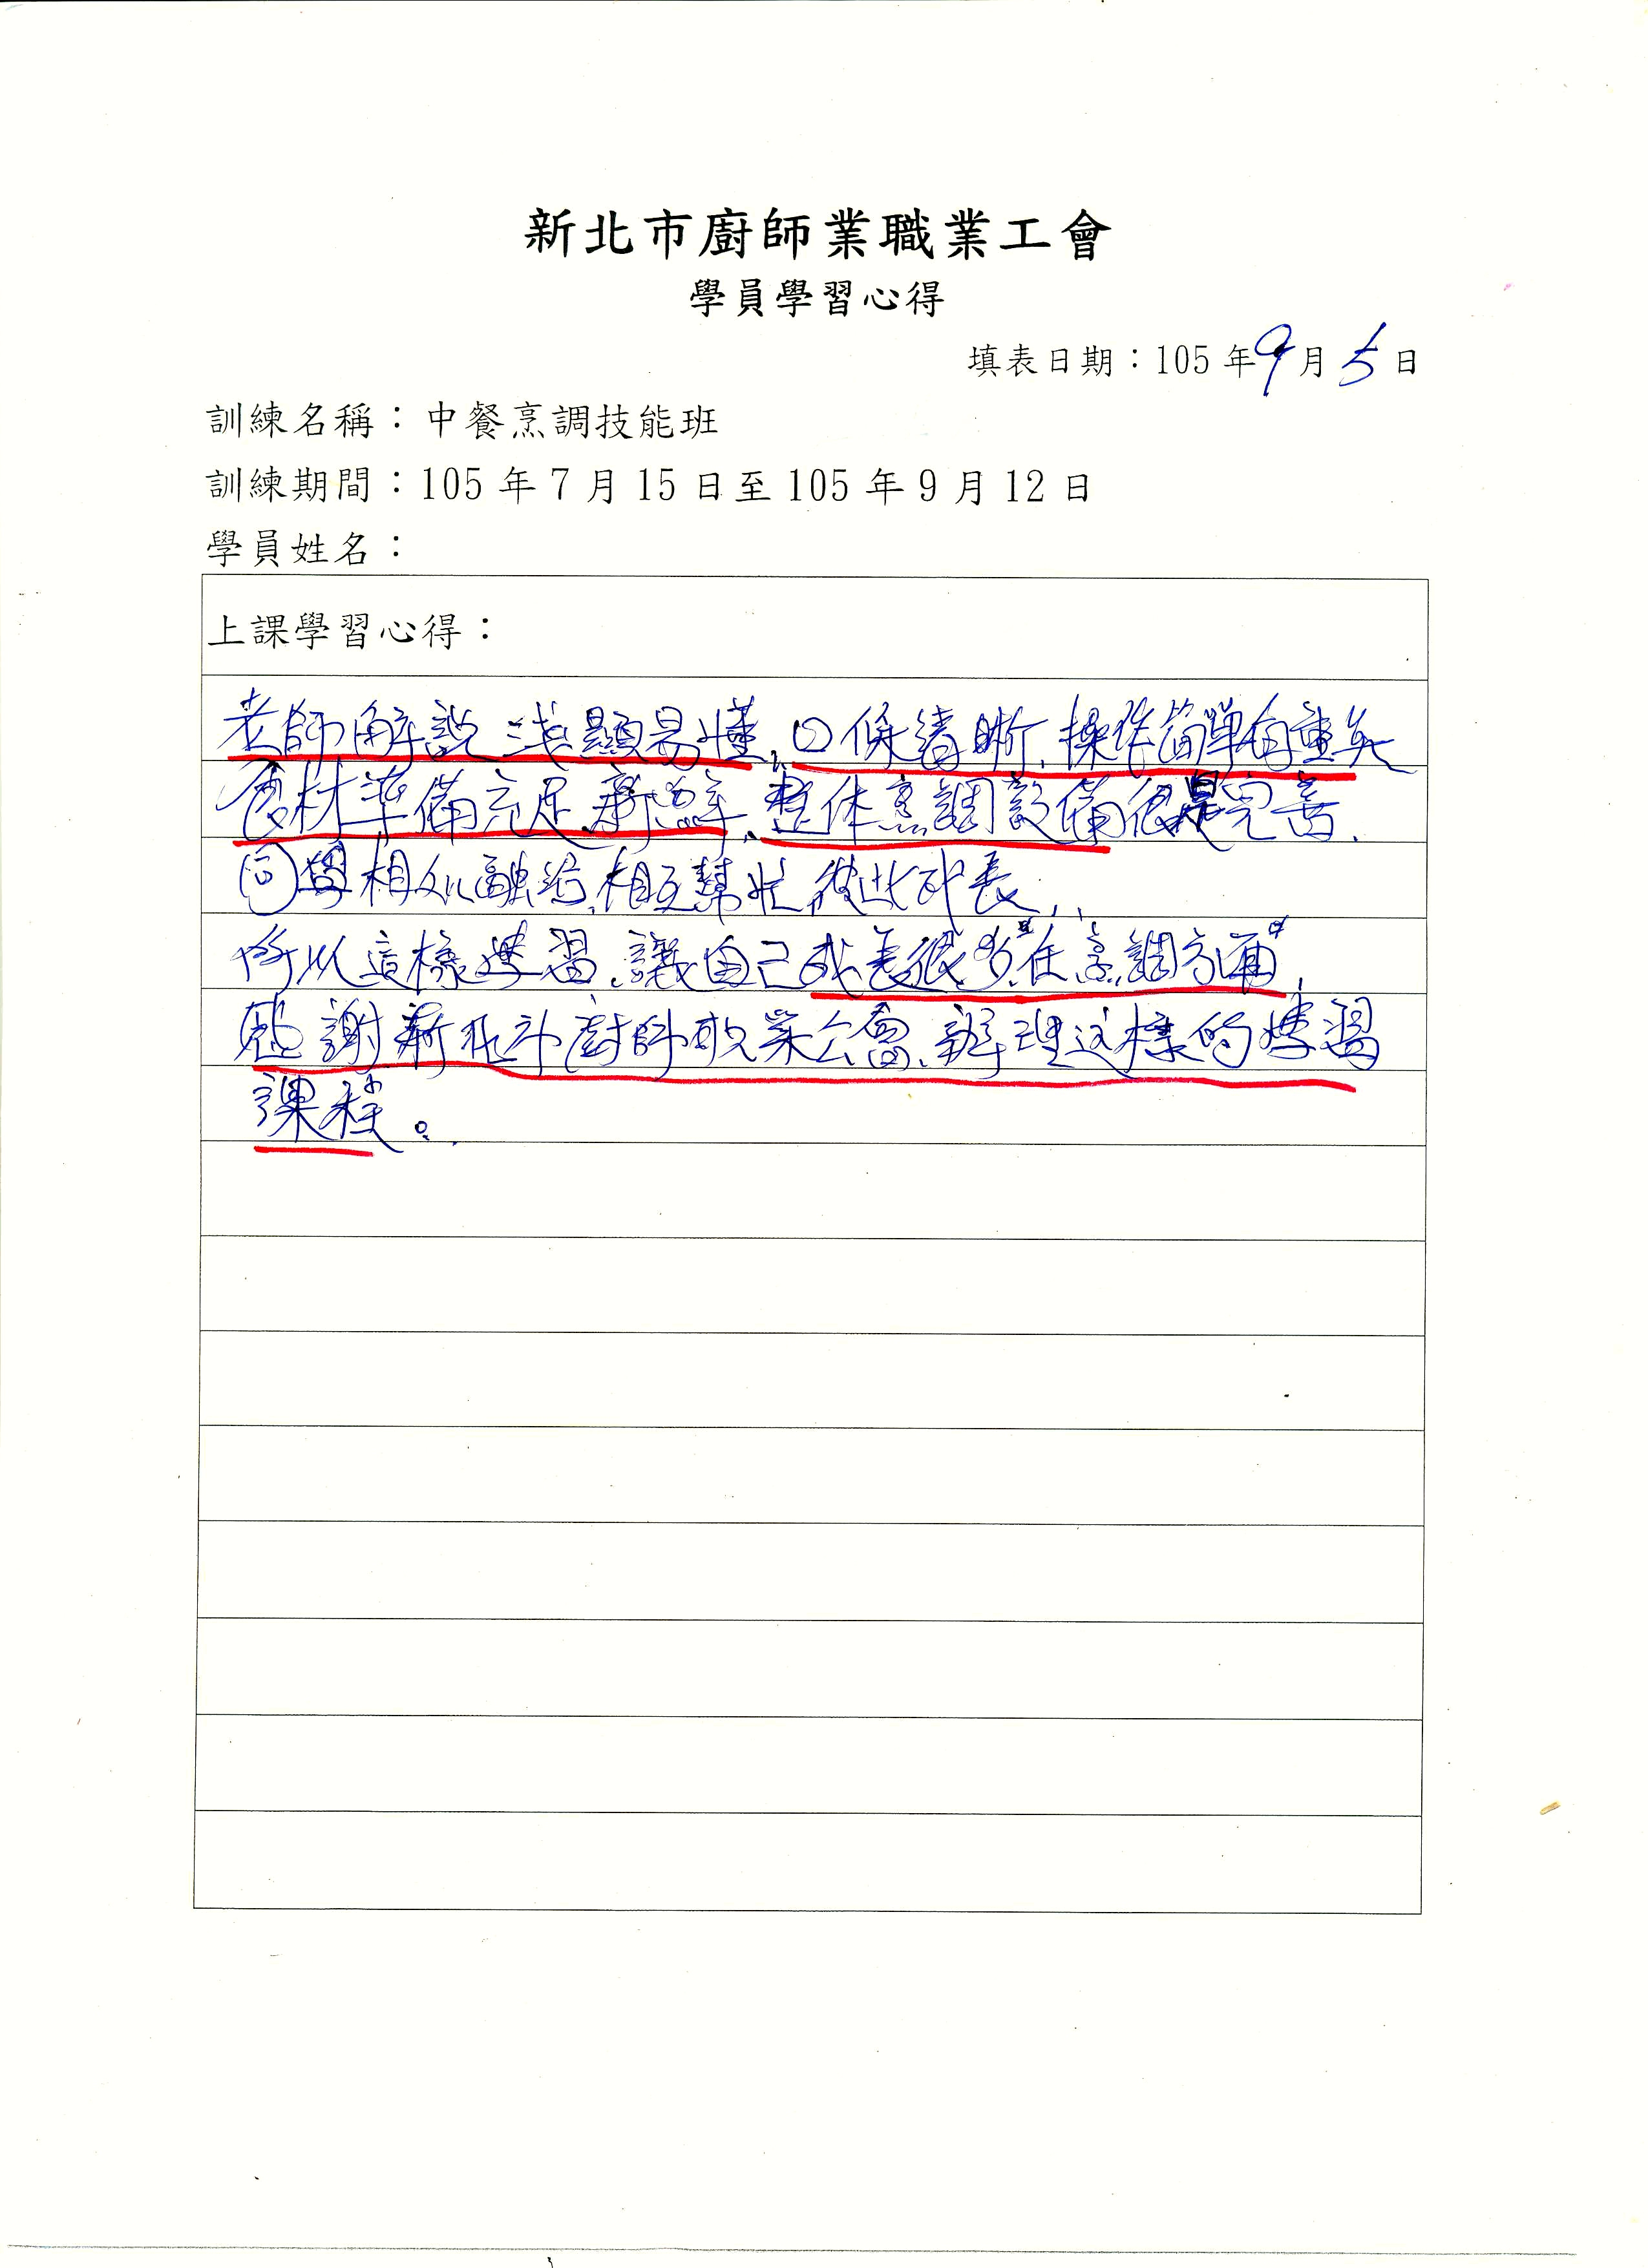 新北市廚師業職業工會
學員學習心得
填表日期：105年9月5日
訓練名稱：中餐烹調技能班
訓練期間：105年7月15日至105年9月12日
學員姓名：
上課學習心得：
老師解說淺顯易懂、口條清晰、操作簡單有重點
食材準備充足、新鮮、整体烹調設備很是完善、
同學相處融洽、相互幫忙、彼此成長、
所以這樣學習、讓自己成長很多"在烹調方面"、
感謝新北市廚師職業公會、辦理這樣的學習
課程。